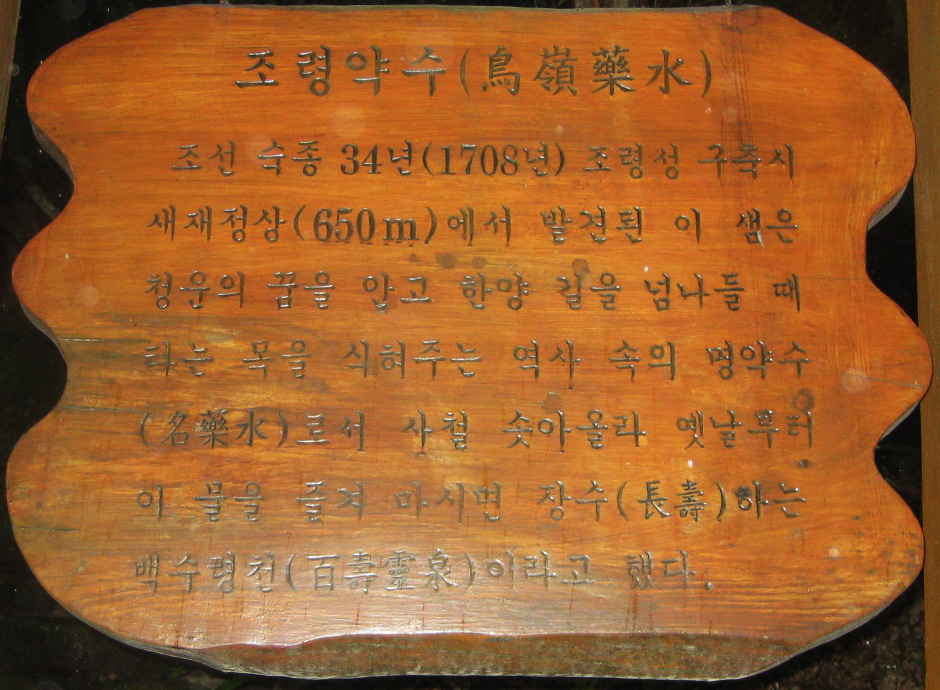 조령약수(鳥嶺藥水)
조선 숙종 34년(1708년) 조령성 구축시
새재정상(650m)에서 발견된 이 샘은
청운의 꿈을 안고 한양 길을 넘나들 때
타는 목을 식혀주는 역사 속의 명약수
(名藥水)로서 사철 솟아올라 옛날부터
이 물을 즐겨 마시면 장수(長壽)하는
백수령천(百壽靈泉)이라고 했다.